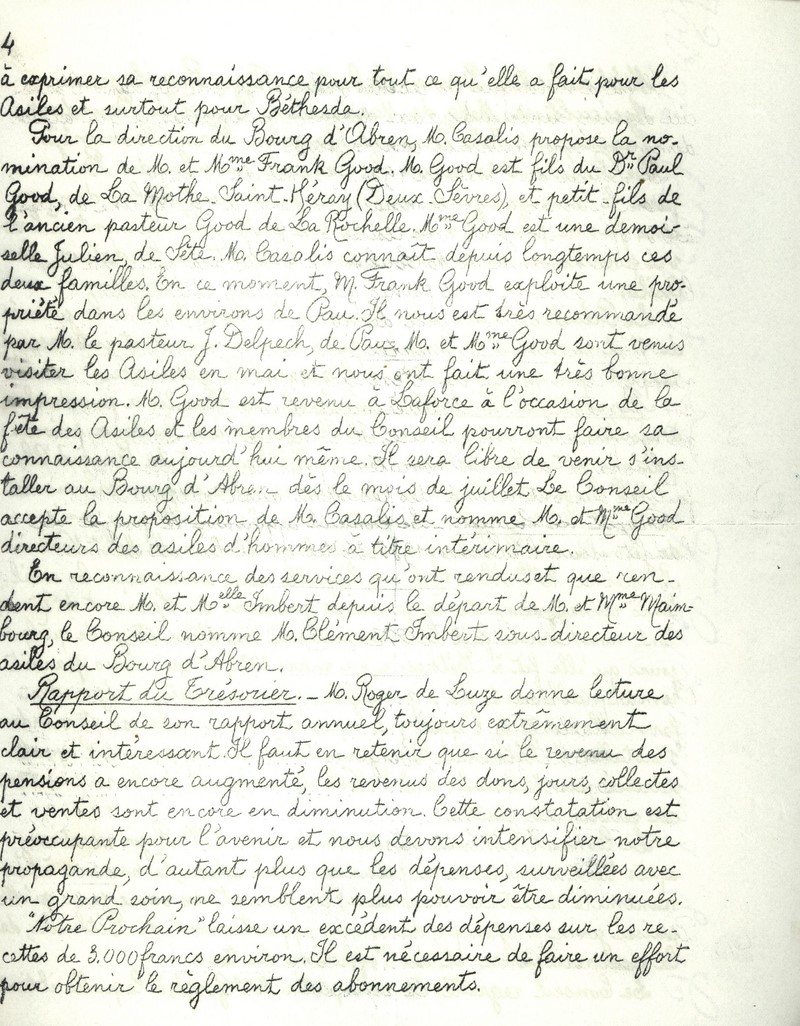 4
à exprimer sa reconnaissance pour tout ce qu'elle a fait pour les
Asiles et surtout pour Béthesda.
Pour la direction du Bourg d'Abren, M. Casalis propose la no-
mination de M. et Mme Frank Good. M. Good est fils du Dr Paul
Good, de La Mothe-Saint-Héray (Deux-Sèvres), et petit-fils de
l'ancien pasteur Good de La Rochelle. Mme Good est une demoi-
selle Julien, de Sète. M. Casalis connaît depuis longtemps ces
deux familles. En ce moment, M. Frank Good exploite une pro-
priété dans les environs de Pau. Il nous est très recommandé
par M. le pasteur J. Delpech, de Pau. M. et Mme Good sont venus
visiter les Asiles en mai et nous ont fait une très bonne
impression. M. Good est revenu à Laforce à l'occasion de la
fête des Asiles et les membres du Conseil pourront faire sa
connaissance aujourd'hui même. Il sera libre de venir s'ins-
taller au Bourg d'Abren dès le mois de juillet. Le Conseil
accepte la proposition de M. Casalis et nomme M. et Mme Good
directeurs des asiles d'hommes à titre intérimaire.
En reconnaissance des services qu'ont rendus et que ren-
dent encore M. et Melle Imbert depuis le départ de M. et Mme Maim-
bourg, le Conseil nomme M. Clément Imbert sous-directeur des
asiles du Bourg d'Abren.
Rapport du Trésorier. - M. Roger de Luze donne lecture
au Conseil de son rapport annuel, toujours extrêmement
clair et intéressant. Il faut en retenir que si le revenu des
pensions a encore augmenté, les revenus des dons, jours, collectes
et ventes sont encore en diminution. Cette constatation est
préoccupante pour l'avenir et nous devons intensifier notre
propagande, d'autant plus que les dépenses, surveillées avec
un grand soin, ne semblent plus pouvoir être diminuées.
"Notre Prochain" laisse un excédent des dépenses sur les re-
cettes de 3.000 francs environ. Il est nécessaire de faire un effort
pour obtenir le règlement des abonnements.